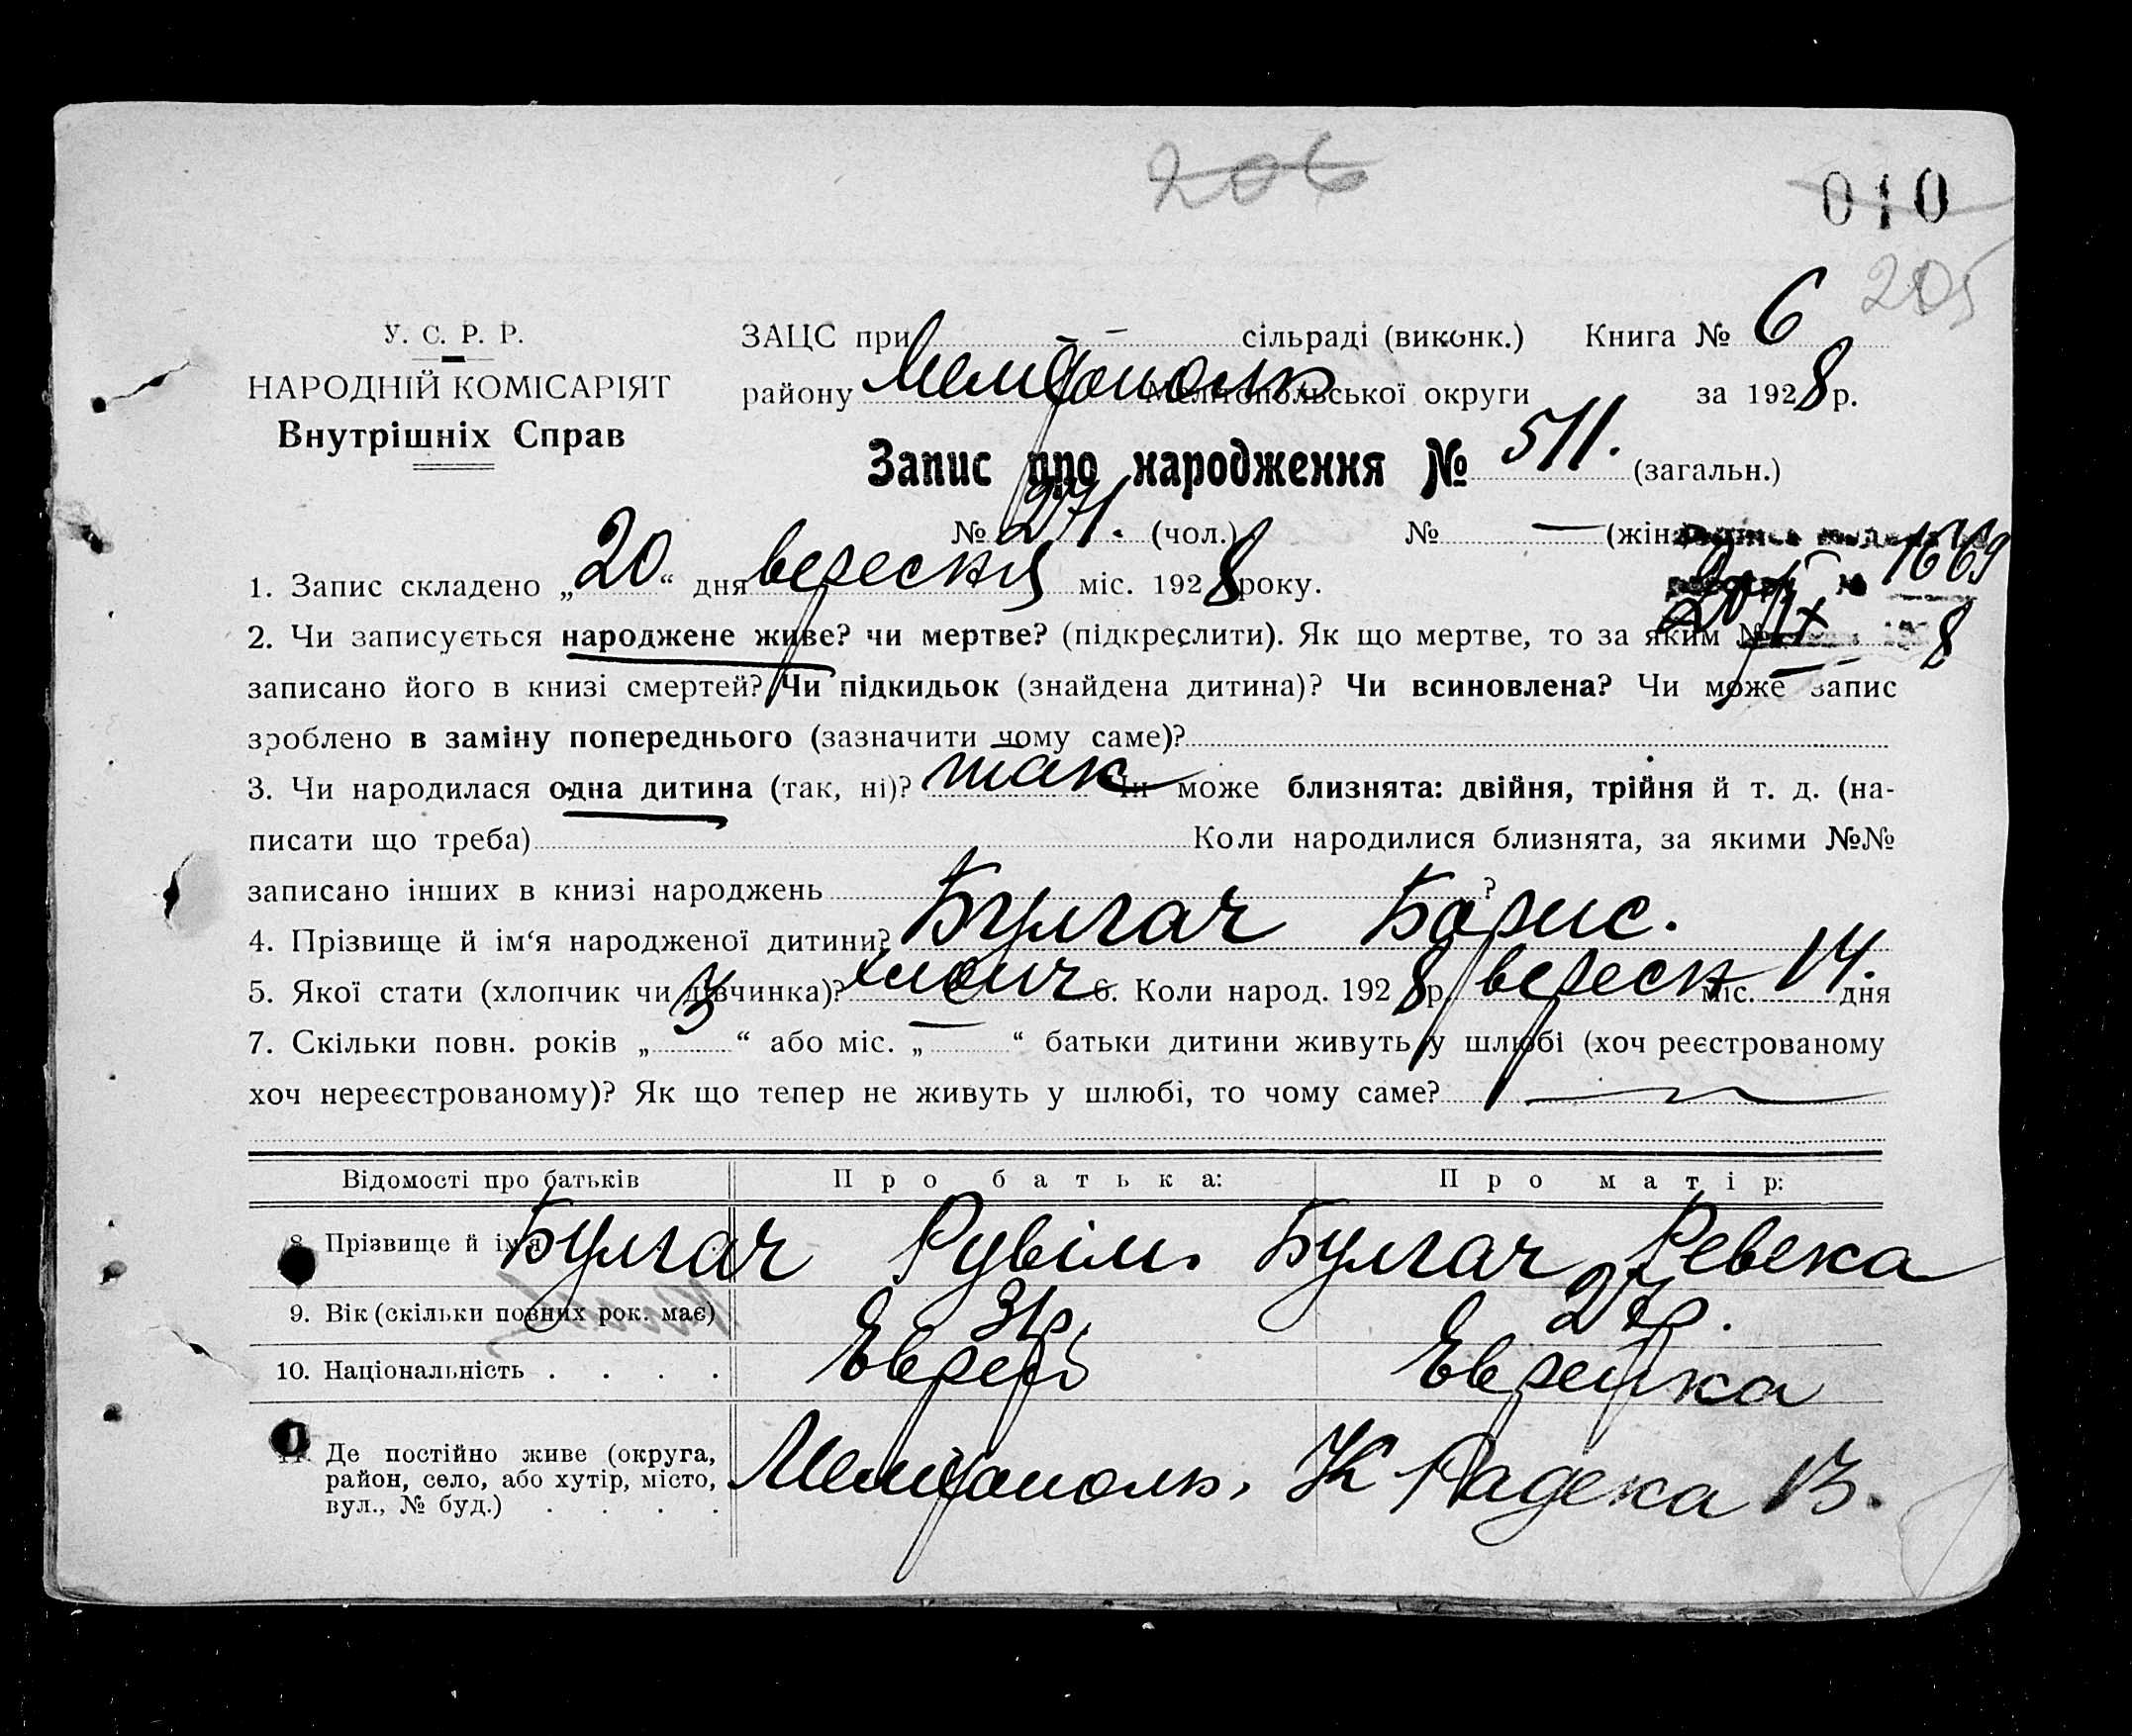 206
010
205
У. С. Р. Р.
НАРОДНІЙ КОМІСАРІЯТ
Внутрішніх Справ
ЗАЦС при – сільраді (виконк.) Книга № 6
району Мелітополь Мелітопольської округи за 1928 р.
Запис про народження № 511. (загальн.)
№ 271. (чол.) № — (жін
1669
1. Запис складено „20“ дня вересня міс. 1928 року.
2. Чи записується народжене живе? чи мертве? (підкреслити). Як що мертве, то за яким №
20/IX 8
записано його в книзі смертей? Чи підкидьок (знайдена дитина)? Чи всиновлена? Чи може запис
зроблено в заміну попереднього (зазначити чому саме)?
3. Чи народилася одна дитина (так, ні)? так Чи може близнята: двійня, трійня й т. д. (на-
писати що треба) Коли народилися близнята, за якими №№
записано інших в книзі народжень ?
4. Прізвище й ім‘я народженої дитини? Булгач Борис.
5. Якої стати (хлопчик чи дівчинка)? хлопч 6. Коли народ. 1928 р. вересн міс. 14. дня
7. Скільки повн. років „3“ або міс. „—“ батьки дитини живуть у шлюбі (хоч реєстрованому
хоч нереєстрованому)? Як що тепер не живуть у шлюбі, то чому саме?
Відомості про батьків Про батька: Про матір:
8. Прізвище й ім‘я Булгач Рувім. Булгач Ревека
9. Вік (скільки повних рок. має) 31р. 27р.
10. Національність . . . . Еврей Еврейка
11. Де постійно живе (округа,
район, село, або хутір, місто,
вул., № буд.) . . . . Мелітополь, К Радека 13.